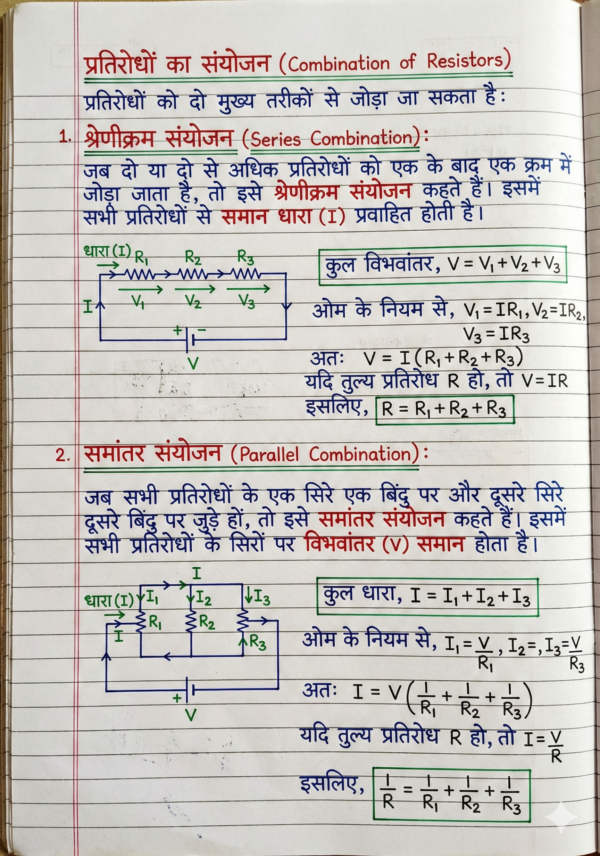 प्रतिरोधों का संयोजन (Combination of Resistors)
प्रतिरोधों को दो मुख्य तरीकों से जोड़ा जा सकता है:
1. श्रेणीक्रम संयोजन (Series Combination):
जब दो या दो से अधिक प्रतिरोधों को एक के बाद एक क्रम में
जोड़ा जाता है, तो इसे श्रेणीक्रम संयोजन कहते हैं। इसमें
सभी प्रतिरोधों से समान धारा (I) प्रवाहित होती है।
धारा (I) R₁ R₂ R₃
I V₁ V₂ V₃
+ −
V
कुल विभवांतर, V = V₁ + V₂ + V₃
ओम के नियम से, V₁ = IR₁, V₂ = IR₂,
V₃ = IR₃
अतः V = I (R₁ + R₂ + R₃)
यदि तुल्य प्रतिरोध R हो, तो V = IR
इसलिए, R = R₁ + R₂ + R₃
2. समांतर संयोजन (Parallel Combination):
जब सभी प्रतिरोधों के एक सिरे एक बिंदु पर और दूसरे सिरे
दूसरे बिंदु पर जुड़े हों, तो इसे समांतर संयोजन कहते हैं। इसमें
सभी प्रतिरोधों के सिरों पर विभवांतर (V) समान होता है।
I
धारा (I) I₁ I₂ I₃
I R₁ R₂ R₃
+
V
कुल धारा, I = I₁ + I₂ + I₃
ओम के नियम से, I₁ = V/R₁, I₂ =, I₃ = V/R₃
अतः I = V(1/R₁ + 1/R₂ + 1/R₃)
यदि तुल्य प्रतिरोध R हो, तो I = V/R
इसलिए, 1/R = 1/R₁ + 1/R₂ + 1/R₃